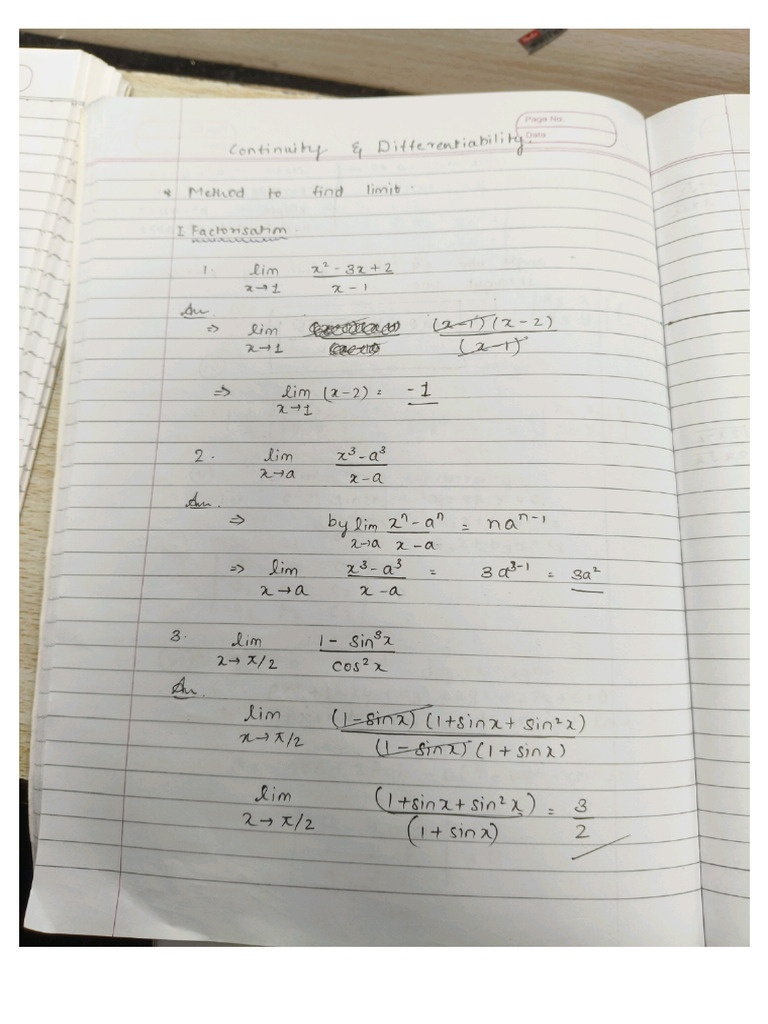 Page No.
Date
Continuity & Differentiability.
* Method to find limit.
I Factorisation.
1. lim x→1 (x² - 3x + 2)/(x - 1)
Ans.
⇒ lim x→1 (x-1)(x-2)/(x-1)
⇒ lim x→1 (x-2) = -1
2. lim x→a (x³ - a³)/(x - a)
Ans.
⇒ by lim x→a (xⁿ - aⁿ)/(x - a) = naⁿ⁻¹
⇒ lim x→a (x³ - a³)/(x - a) = 3a³⁻¹ = 3a²
3. lim x→π/2 (1 - sin³x)/(cos²x)
Ans.
lim x→π/2 (1-sinx)(1+sinx+sin²x)/(1-sinx)(1+sinx)
lim x→π/2 (1+sinx+sin²x)/(1+sinx) = 3/2